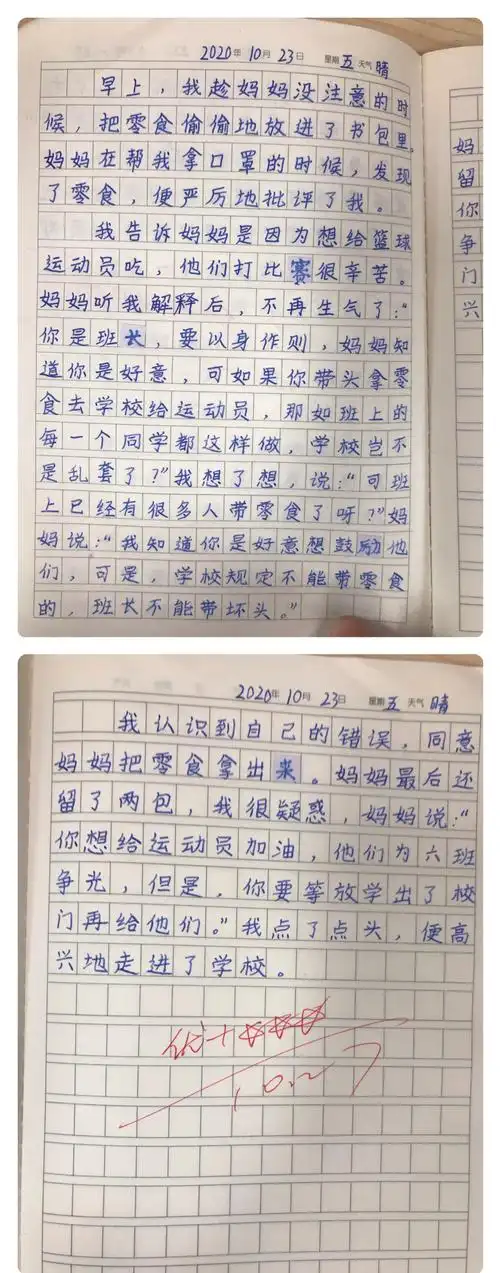 2020年10月23日 星期五 天气晴
早上，我趁妈妈没注意的时
候，把零食偷偷地放进了书包里。
妈妈在帮我拿口罩的时候，发现
了零食，便严厉地批评了我。
我告诉妈妈是因为想给篮球
运动员吃，他们打比赛很辛苦。
妈妈听我解释后，不再生气了：“
你是班长，要以身作则，妈妈知
道你是好意，可如果你带头拿零
食去学校给运动员，那如班上的
每一个同学都这样做，学校岂不
是乱套了？”我想了想，说：“可班
上已经有很多人带零食了呀？”妈
妈说：“我知道你是好意想鼓励他
们，可是，学校规定不能带零食
的，班长不能带坏头。”
妈
留
你
争
门
兴
2020年10月23日 星期五 天气晴
我认识到自己的错误，同意
妈妈把零食拿出来。妈妈最后还
留了两包，我很疑惑，妈妈说：“
你想给运动员加油，他们为六班
争光，但是，你要等放学出了校
门再给他们。”我点了点头，便高
兴地走进了学校。
优+☆☆☆
10.27